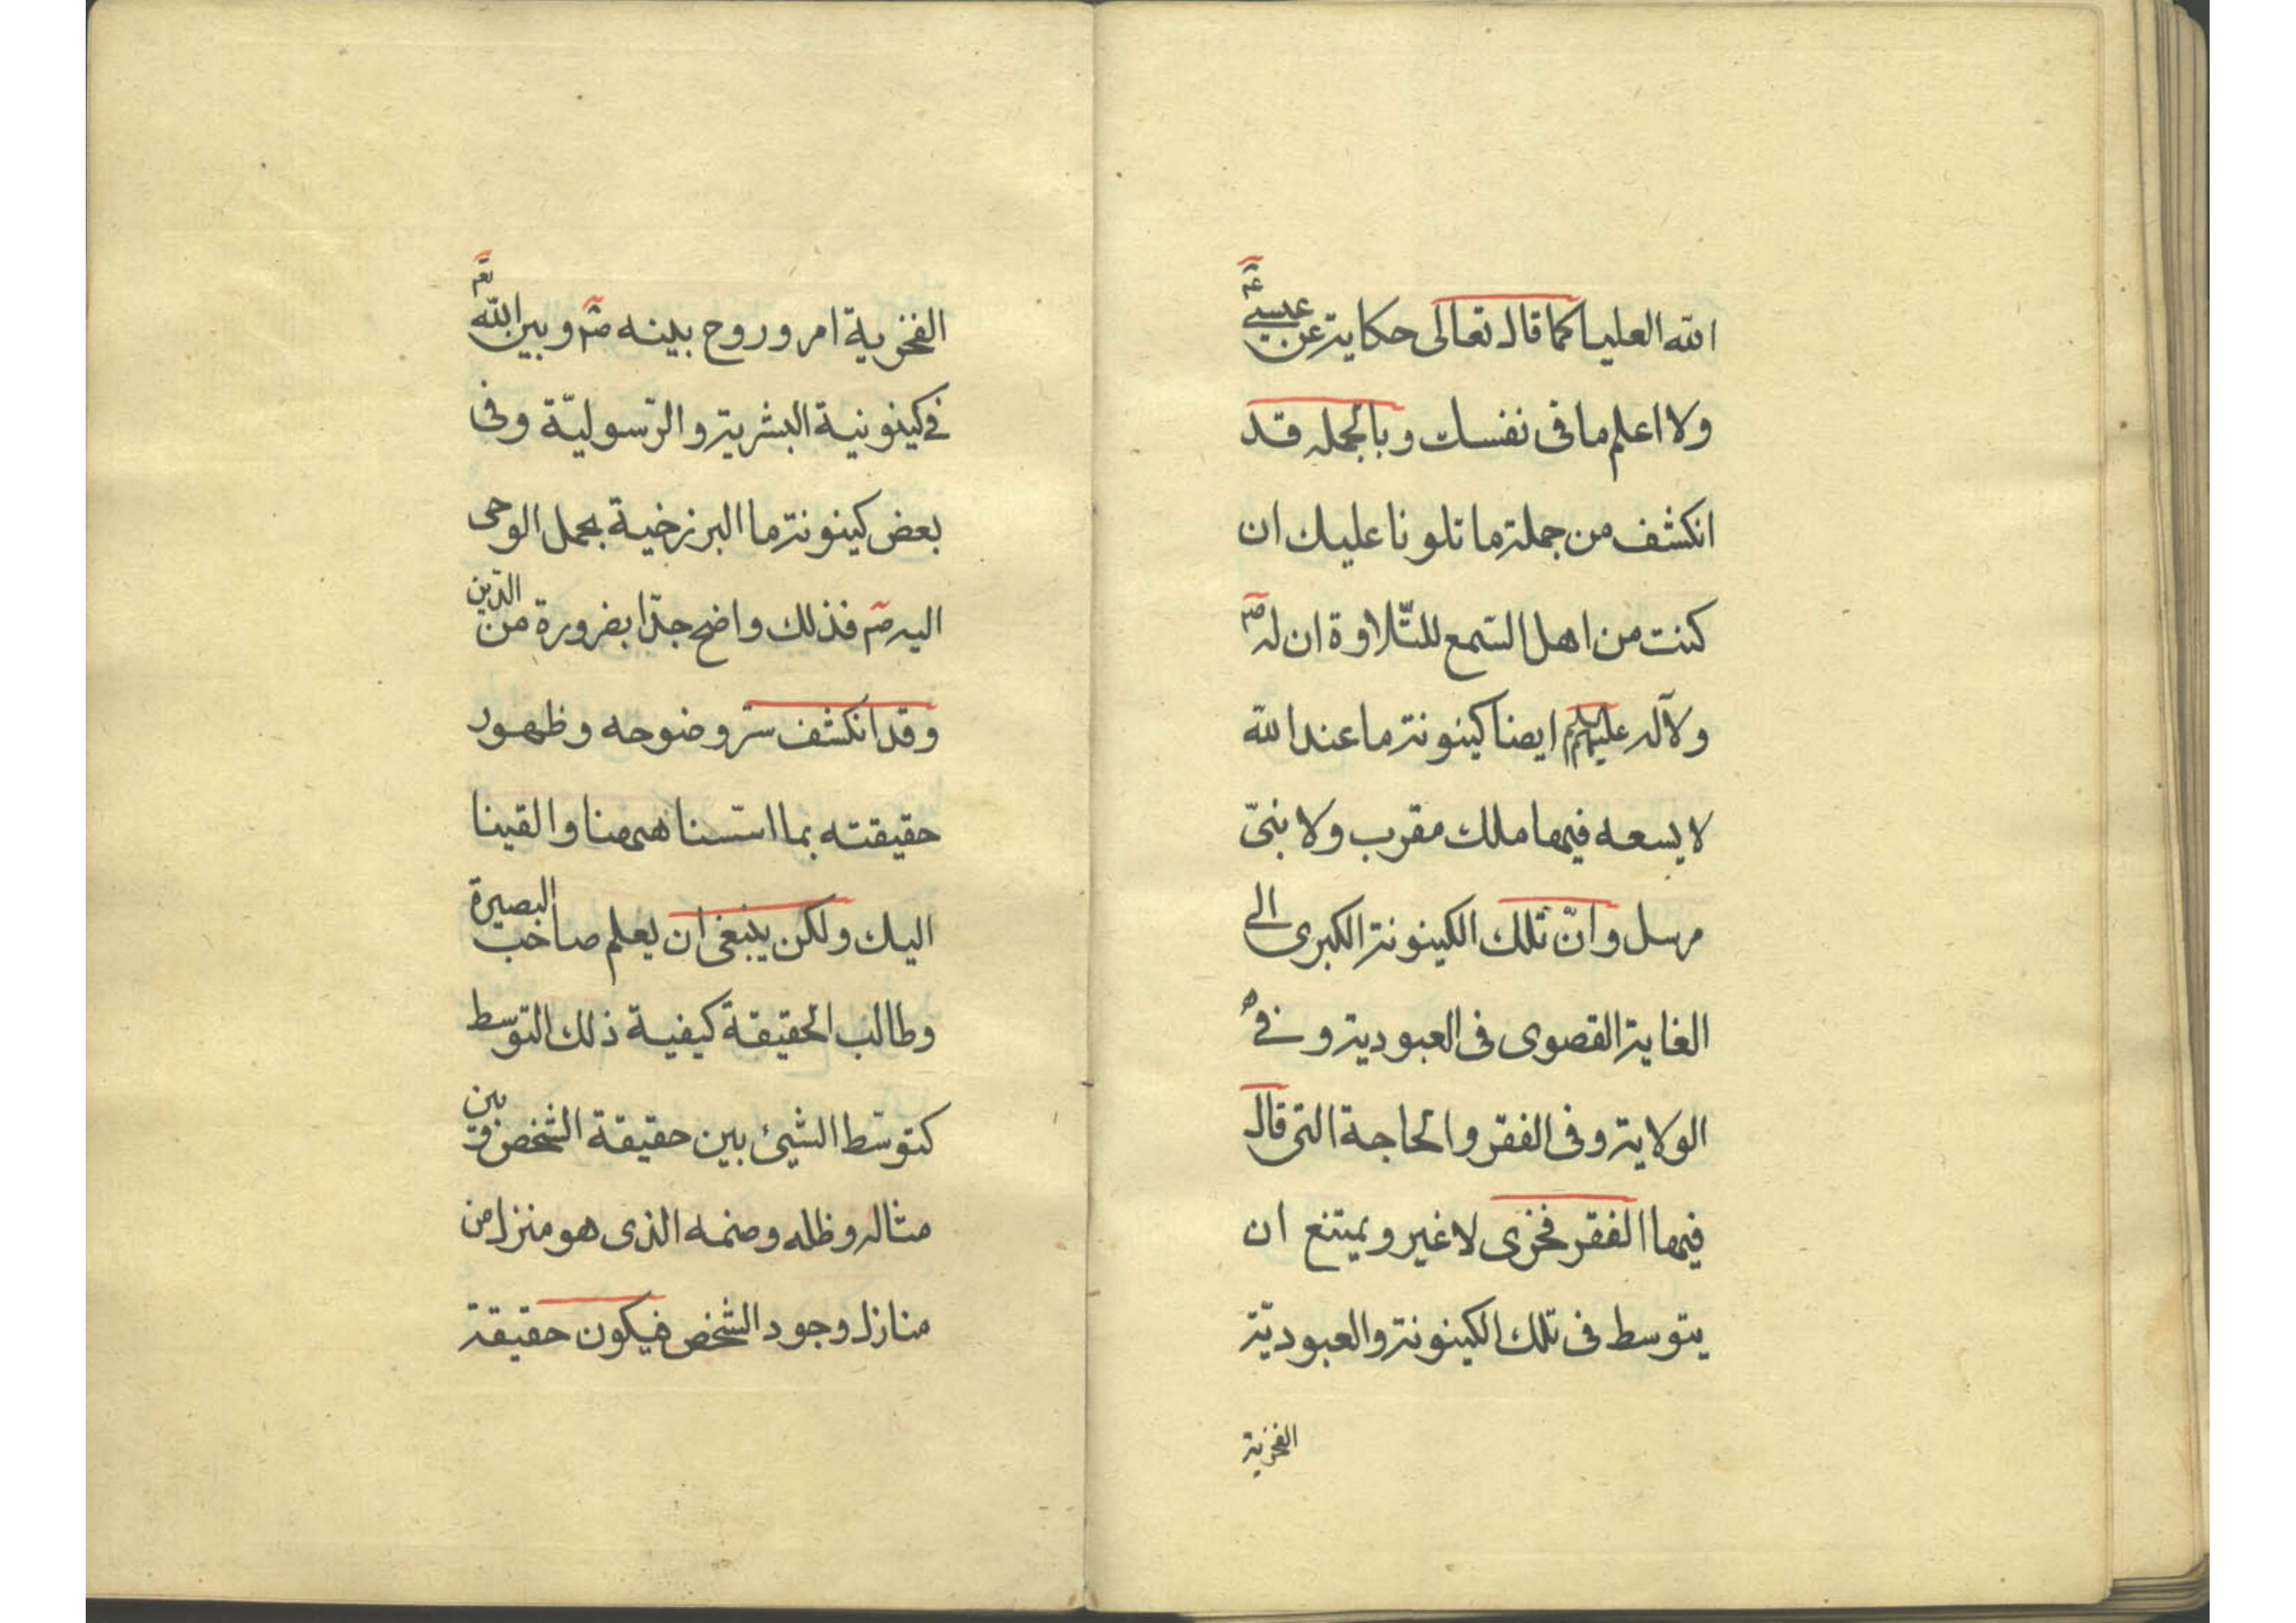 الله العليا كما قال تعالى حكاية عن عيسى عم
ولا اعلم ما فى نفسك وبالجمله قد
انكشف من جملة ما تلونا عليك ان
كنت من اهل السّمع للتّلاوة ان له ص
ولآله عليهم ايضا كينونة ما عند الله
لا يسعه فيها ملك مقرب ولا نبىّ
مرسل وانّ تلك الكينونة الكبرى الى
الغاية القصوى فى العبودية و فى
الولاية وفى الفقر والحاجة التى قال
فيها الفقر فخرى لا غير ويمتنع ان
يتوسط فى تلك الكينونة والعبوديّة
الفخرية
الفخرية امر وروح بينه ص وبين الله تع
فى كينونية البشرية والرّسوليّة وفى
بعض كينونة ما البرزخية بحمل الوحى
اليه ص فذلك واضح جدّا بضرورة من الدّين
وقد انكشف سرّ وضوحه وظهور
حقيقته بما اسّسنا ههنا والقينا
اليك ولكن ينبغى ان يعلم صاحب البصيرة
وطالب الحقيقة كيفية ذلك التوسّط
كتوسّط الشيئ بين حقيقة الشخص وبين
مثاله وظله وصنمه الذى هو منزل من
منازل وجود الشخص فيكون حقيقة